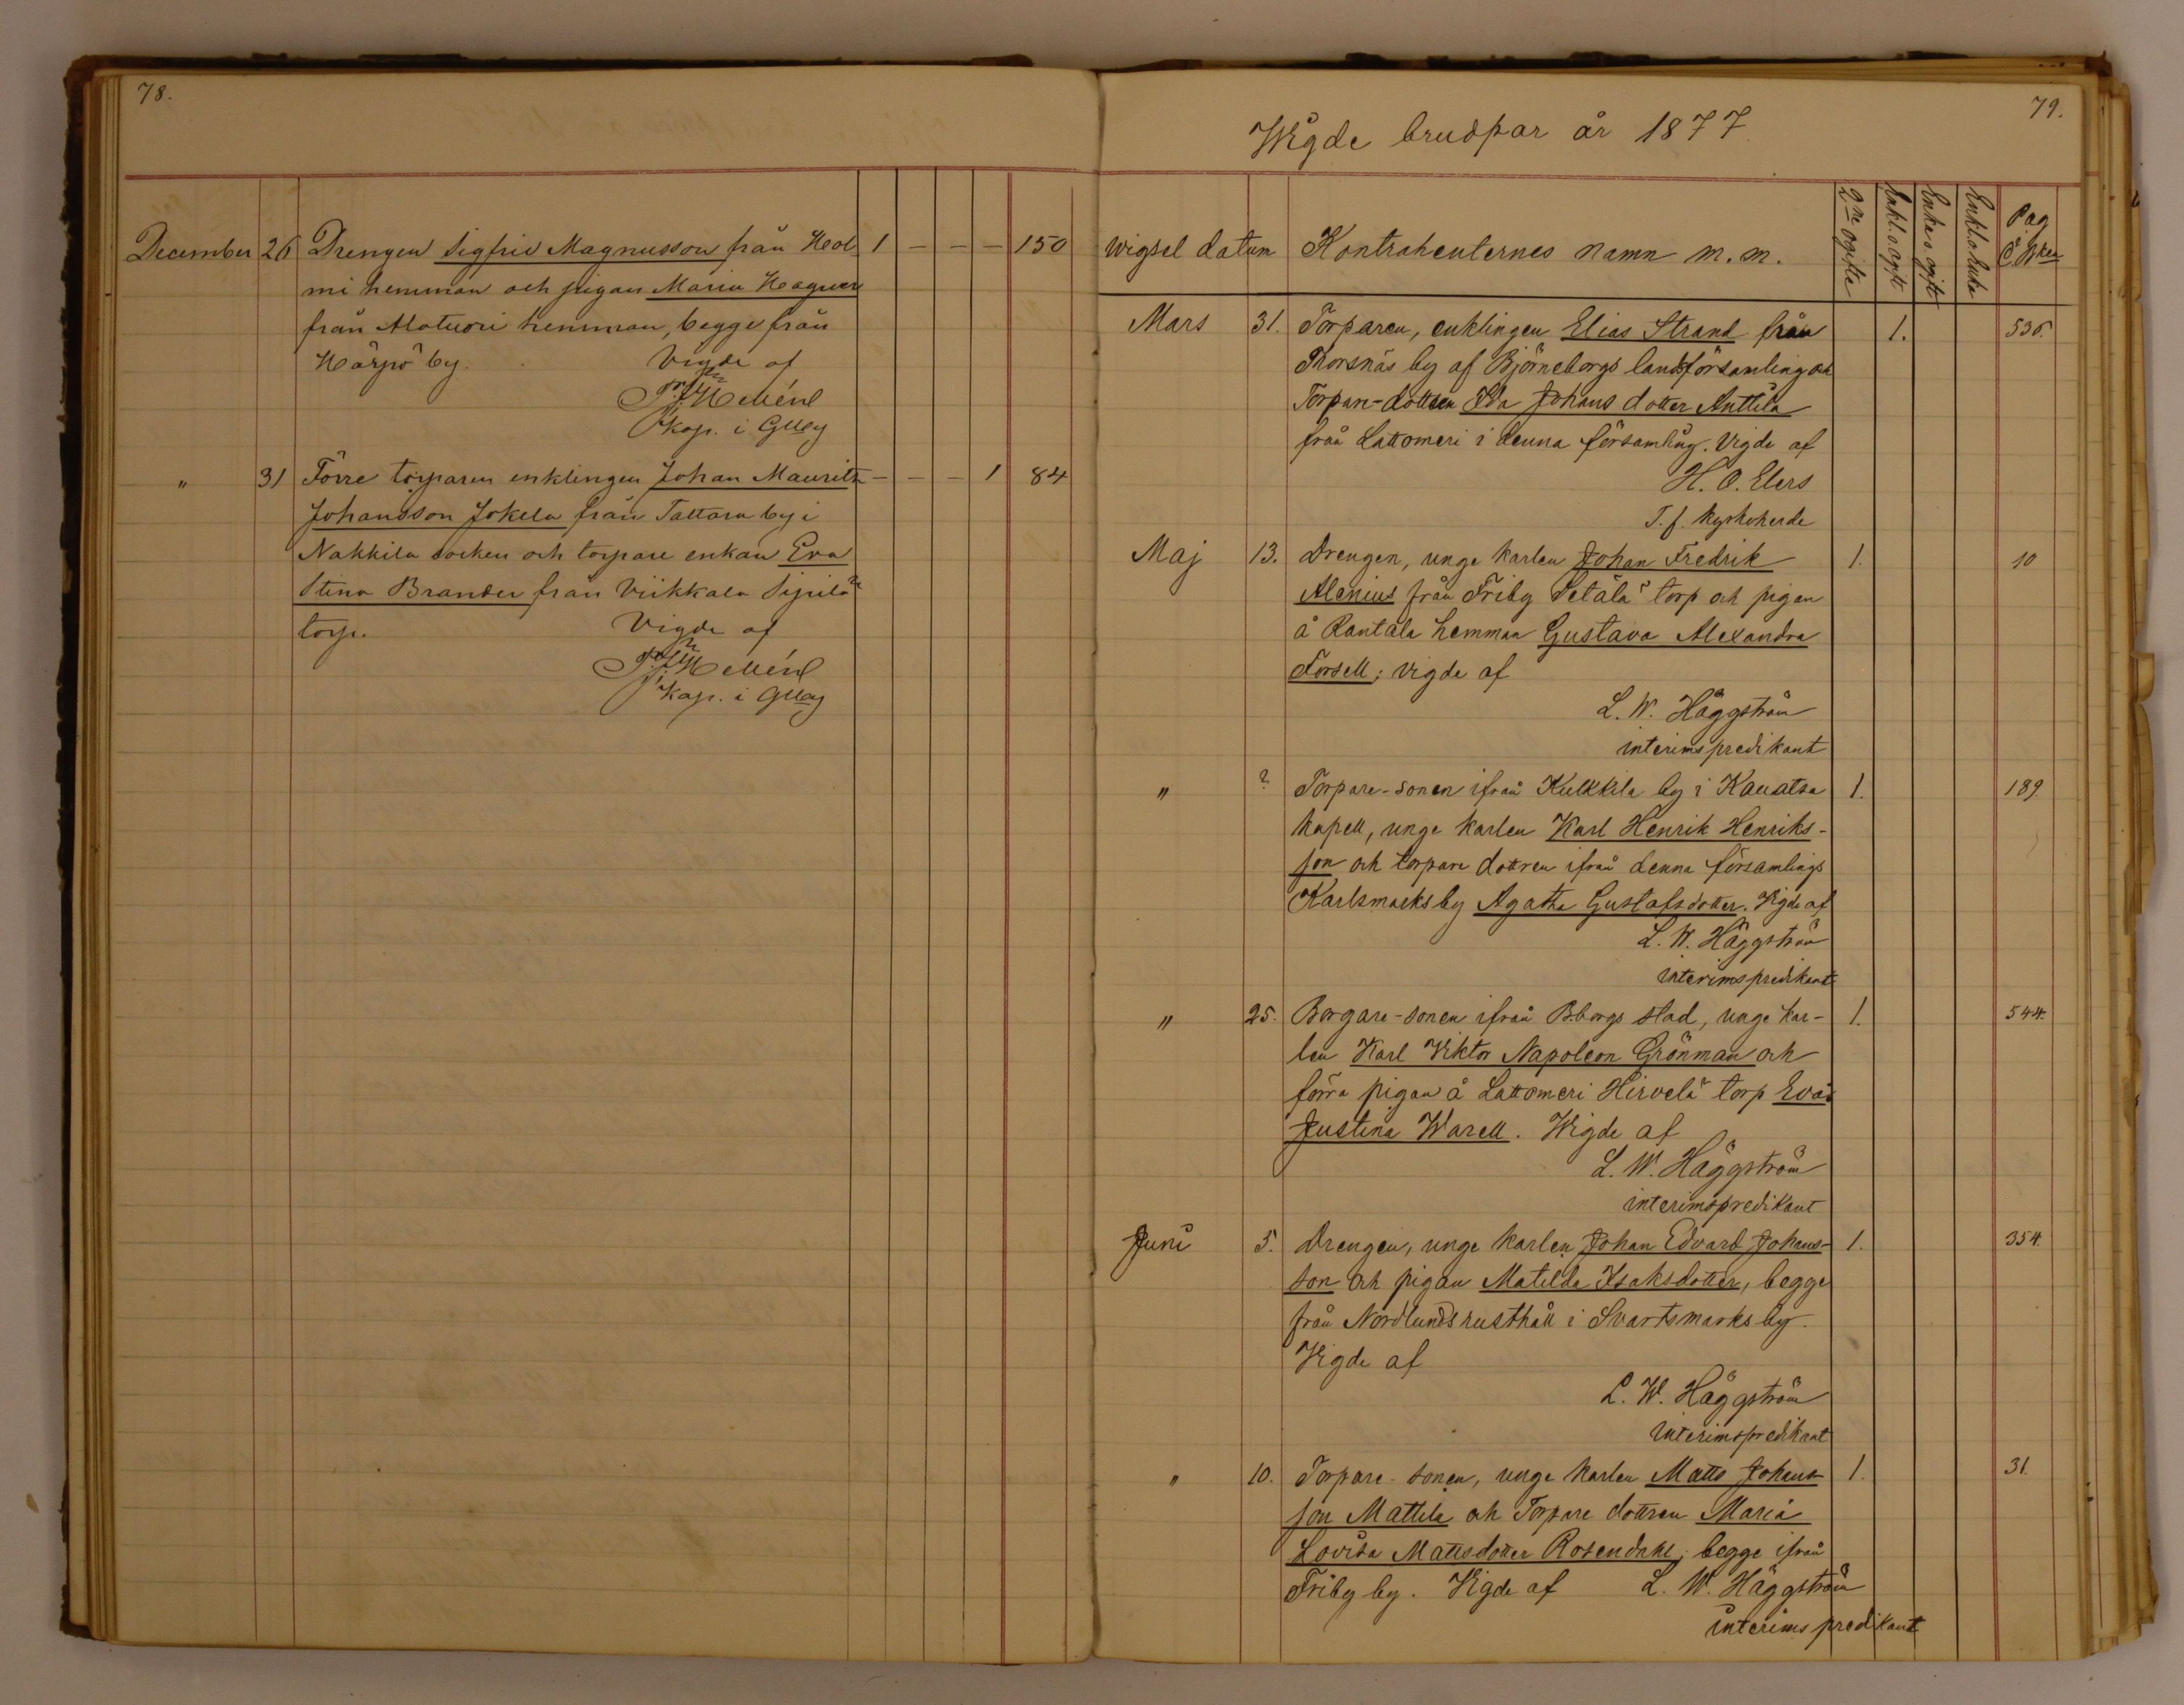 78.
December 26 Drengen Sigfrid Magnusson från Hol- 1 — — — 150
mi hemman och pigan Maria Hagner
från Alatuori hemman, begge från
Härpö by. Vigde af
Hellén
kap. i Gllby
" 31 Förre torparen enklingen Johan Mauritz — — — 1 84
Johansson Jokela från Tattara by i
Nakkila socken och torpare enkan Eva
Stina Brander från Viikkala Sipilä
torp. Vigde af
Hellén
kap. i Gllby
79.
Wigde brudpar år 1877
Wigsel datum Kontrahenternes namn m.m. 2ne ogifte Enkl. o ogift Enka o ogift Enkl. o Enka Pag.
Mars 31. Torparen, enklingen Elias Strand från 1. 536.
Thorsnäs by af Björneborgs landsförsamling och
Torpar-dottren Ida Johans dotter Anttila
från Lattomeri i denna församling. Vigde af
H. O. Elers
T. f. kyrkoherde
Maj 13. Drengen, unge karlen Johan Fredrik 1. 10
Alenius från Friby Setälä torp och pigan
å Rantala hemman Gustava Alexandra
Forsell; vigde af
L. W. Häggström
interimspredikant
" ? Torpare-sonen ifrån Kulkkila by i Kauatsa 1. 189
kapell, unge karlen Karl Henrik Henriks-
son och torpare dottren ifrån denna församlings
Karlsmarks by Agatha Gustafsdotter. Vigde af
L. W. Häggström
interimspredikant
" 25. Borgare-sonen ifrån B.borgs stad, unge kar- 1. 544.
len Karl Viktor Napoleon Grönman och
förra pigan å Lattomeri Hirvelä torp Eva
Justina Warell. Wigde af
L. W. Häggström
interimspredikant
Juni 5. Drengen, unge karlen Johan Edvard Johans- 1. 354.
son och pigan Matilda Isaksdotter, begge
från Nordlunds rusthåll i Svartsmarks by.
Vigde af
L. W. Häggström
interimspredikant
" 10. Torpare-sonen, unge karlen Matts Johans- 1. 31.
son Mattila och Torpare dottren Maria
Lovisa Mattsdotter Rosendahl; begge ifrån
Friby by. Vigde af L. W. Häggström
interims predikant